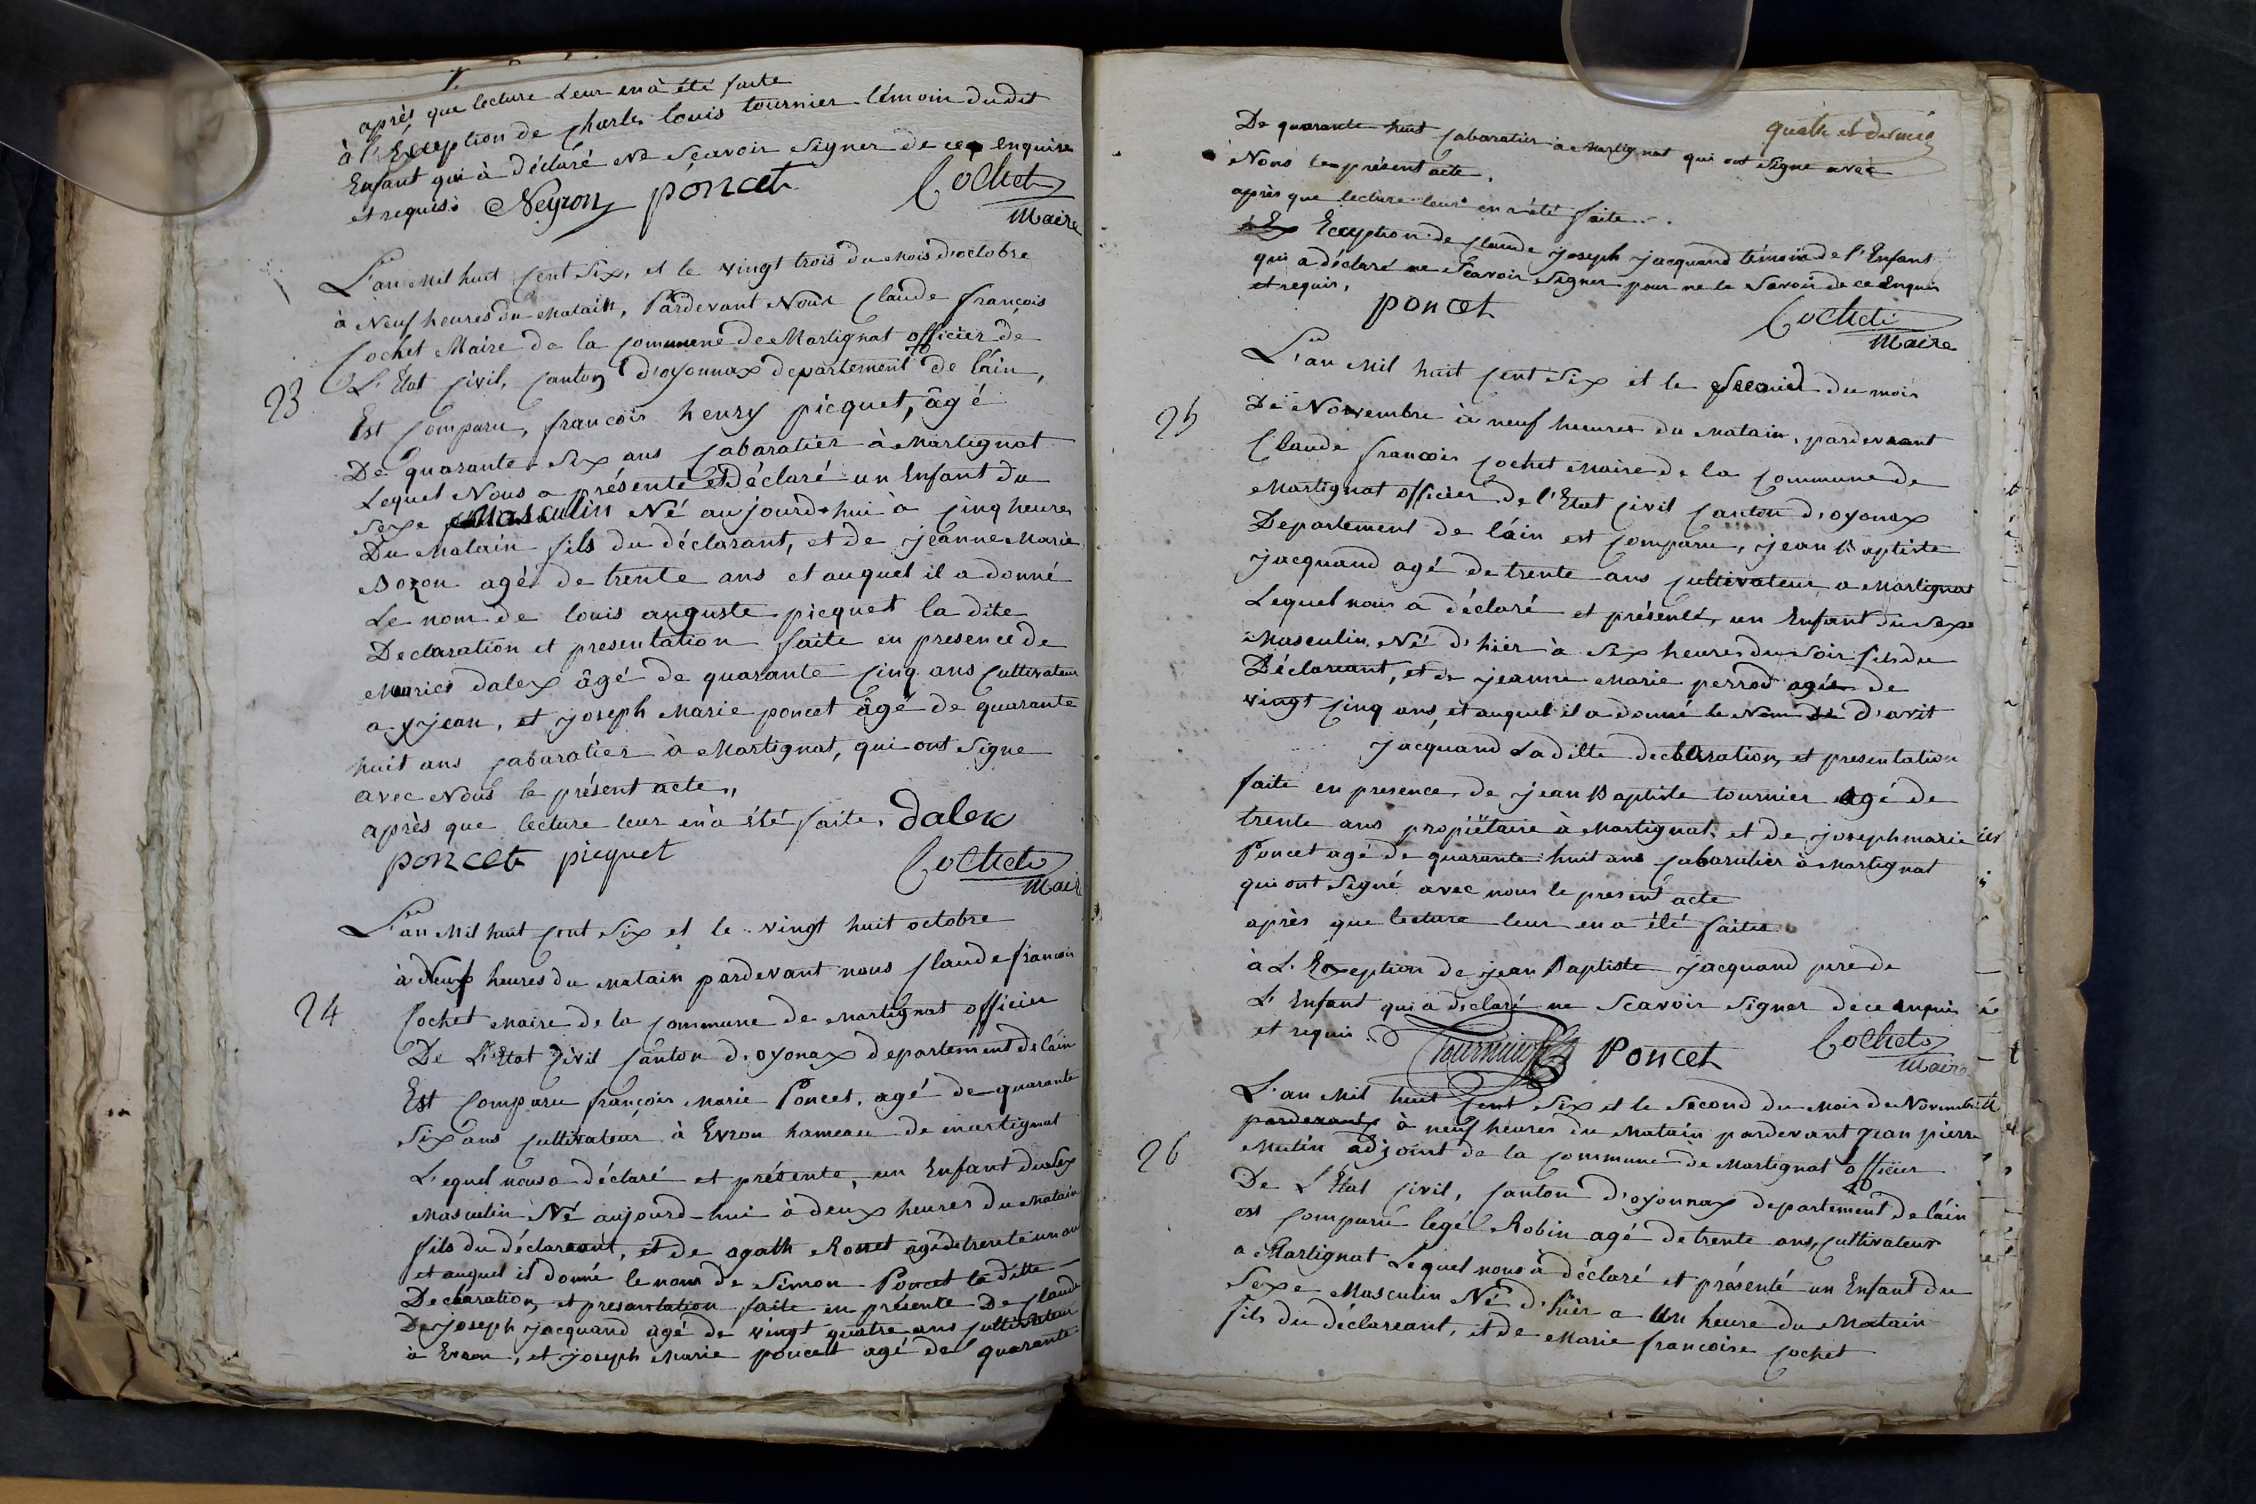 après que lecture Leur en à été faite
à l'Exception de Charles louis tournier témoin dudit
Enfant qui à déclaré Ne Sçavoir Signer de ce enquire
et requis. Neyron poncet Cochet
Maire
L'an Mil huit Cent Six, et le vingt trois du Mois d'octobre
à Neuf heures du Matain, Pardevant Nous Claude françois
Cochet Maire de la Commune de Martignat officier de
23
L'État Civil, Canton d'oyonnax departement de l'áin,
Est Comparu, françois henry picquet, âgé
De quarante-Six ans Cabaratier à Martignat
Lequel Nous a présenté et Déclaré un Enfant du
Sexe Masculin Né aujourd-hui à Cinq heures
Du Matain fils du déclarant, et de jeanne Marie
Bozon agée de trente ans et auquel il a donné
Le nom de louis auguste picquet la dite
Declaration et presentation faite en presence de
Maries dalex âgé de quarante Cinq ans Cultivateur
a yjean, et joseph Marie poncet âgé de quarante
huit ans Cabaratier à Martignat, qui ont Signe
avec Nous le présent acte,,
après que lecture leur en à été faite. Dalex
poncet picquet Cochet
Mair
L'an Mil huit Cent Six et le vingt huit octobre
à Neuf heures du Matain pardevant nous Claude françois
24
Cochet Maire de la Commune de Martignat officier
De L'Etat Civil Canton d'oyonax departement de láin
Est Comparu françois Marie Poncet, agé de quarante
Six ans Cultivateur à Evron hameau de martignat
L'equel nous a déclaré et présenté, un Enfant du Sex
Masculin Né aujourd-hui à deux heures du Matain
fils du déclareant, et de agath Ronet agé de trente un an
et auquel il donné le nom de Simon Poncet la ditte
Declaration et presantation faite en présente De Claude
De joseph jacquand agé de vingt quatre ans Cultivateur
à Evron, et joseph Marie poncet agé de quarante
quatre et
De quarante huit Cabaratier à Martignat qui ont Signe avec
Nous le présent acte.
après que lecture leur en a été faite.
Exception de Claude joseph jacquand témoin de l'Enfant
qui a déclaré ne Sçavoir Signer pour ne le Savoir de ce Enquis
et requis. poncet Cochet
Maire
L'an Mil huit Cent Six et le Second du mois
25
De Novembre à neuf heures du Matain, pardevant
Claude françois Cochet Maire de la Commune de
Martignat officier de l'Etat Civil Canton d'oyonax
Departement de láin est Comparu, jean Baptiste
jacquand agé de trente ans Cultivateur a Martignat
Lequel nous a déclaré et présenté, un Enfant du Sexe
Masculin. Né d'hier à Six heures du Soir fils du
Déclareant, et de jeanne Marie perrod agée de
vingt Cinq ans, et auquel il a donné le Nom De d'avit
jacquand La ditte declaration, et presentation
faite en presence de jean Baptiste tournier agé de
trente ans propiëtaire à Martignat. et de joseph marie
Poncet agé de quarante huit ans Cabaratier à Martignat
qui ont Signé avec nous le present acte
après que lecture leur en a été faite
à L'Exception de jean Baptiste jacquand pere de
L'Enfant qui a déclaré ne Scavoir Signer de ce enquis
et requis Tournier Poncet Cochet
Maire
L'an Mil huit Cent Six et le Second du Mois de Novembre
pardevant à neuf heures du Matain pardevant jean pierre
26
Mutin adjoint de la Commune de Martignat officier
De L'Etat Civil, Canton d'oyonnax departement de láin
est Comparu legé Robin agé de trente ans, Cultivateur
a Martignat Lequel nous à déclaré et présenté un Enfant du
Sexe Masculin Né d'hier a Un heure du Matain
fils du déclareant, et de Marie françoise Cochet